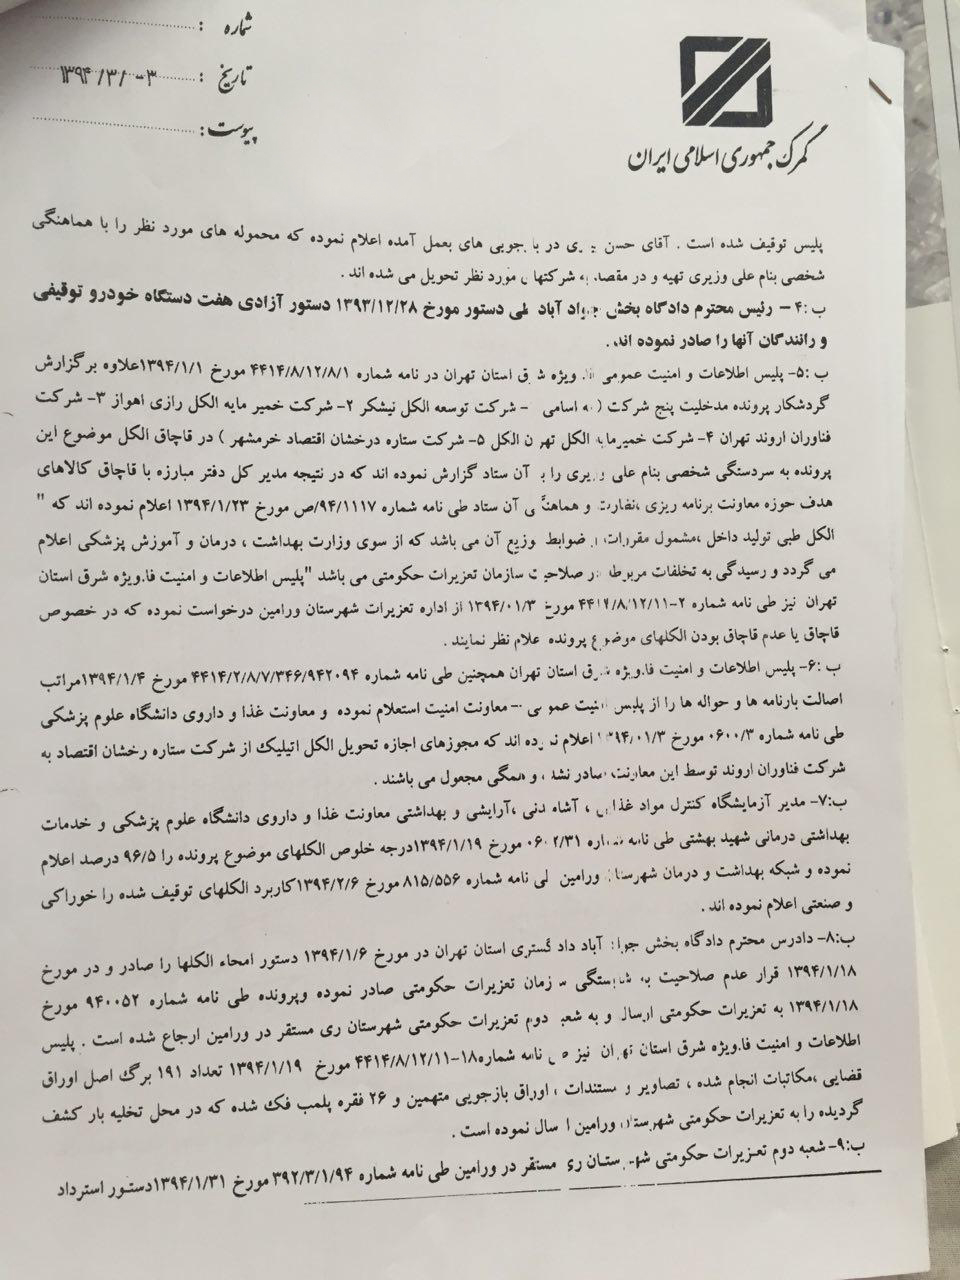 شماره :
تاریخ : ۱۳۹۴/۳/-۳
پیوست :
گمرک جمهوری اسلامی ایران
پلیس توقیف شده است . آقای حسن در بازجویی های بعمل آمده اعلام نموده که محموله های مورد نظر را با هماهنگی
شخصی بنام علی وزیری تهیه و در مقصد به شرکتهای مورد نظر تحویل می شده اند .
ب :۴ – رئیس محترم دادگاه بخش جواد آباد طی دستور مورخ ۱۳۹۳/۱۲/۲۸ دستور آزادی هفت دستگاه خودرو توقیفی
و رانندگان آنها را صادر نموده اند .
ب :۵- پلیس اطلاعات و امنیت عمومی فا. ویژه شرق استان تهران در نامه شماره ۴۴۱۴/۸/۱۲/۸/۱ مورخ ۱۳۹۴/۱/۱علاوه برگزارش
گردشکار پرونده مدخلیت پنج شرکت ( به اسامی - شرکت توسعه الکل نیشکر ۲- شرکت خمیر مایه الکل رازی اهواز ۳- شرکت
فناوران اروند تهران ۴- شرکت خمیرمایه الکل تهران الکل ۵- شرکت ستاره درخشان اقتصاد خرمشهر ) در قاچاق الکل موضوع این
پرونده به سردستگی شخصی بنام علی وزیری را به آن ستاد گزارش نموده اند که در نتیجه مدیر کل دفتر مبارزه با قاچاق کالاهای
هدف حوزه معاونت برنامه ریزی ،نظارت و هماهنگی آن ستاد طی نامه شماره ۹۴/۱۱۱۷/ص مورخ ۱۳۹۴/۱/۲۳ اعلام نموده اند که "
الکل طبی تولید داخل ،مشمول مقررات ضوابط توزیع آن می باشد که از سوی وزارت بهداشت ، درمان و آموزش پزشکی اعلام
می گردد و رسیدگی به تخلفات مربوطه در صلاحیت سازمان تعزیرات حکومتی می باشد "پلیس اطلاعات و امنیت فا.ویژه شرق استان
تهران نیز طی نامه شماره ۲-۴۴۱۴/۸/۱۲/۱۱ مورخ ۱۳۹۴/۰۱/۳ از اداره تعزیرات شهرستان ورامین درخواست نموده که در خصوص
قاچاق یا عدم قاچاق بودن الکلهای موضوع پرونده اعلام نظر نمایند .
ب :۶- پلیس اطلاعات و امنیت فا.ویژه شرق استان تهران همچنین طی نامه شماره ۴۴۱۴/۲/۸/۷/۳۴۶/۹۴۲۰۹۴ مورخ ۱۳۹۴/۱/۴مراتب
اصالت بارنامه ها و حواله ها را از پلیس امنیت عمومی – معاونت امنیت استعلام نموده و معاونت غذا و داروی دانشگاه علوم پزشکی
طی نامه شماره ۰۶۰۰/۳ مورخ ۱۳۹۴/۰۱/۳ اعلام نموده اند که مجوزهای اجازه تحویل الکل اتیلیک از شرکت ستاره رخشان اقتصاد به
شرکت فناوران اروند توسط این معاونت صادر نشده و همگی مجعول می باشند .
ب:۷- مدیر آزمایشگاه کنترل مواد غذایی ، آشامیدنی ،آرایشی و بهداشتی معاونت غذا و داروی دانشگاه علوم پزشکی و خدمات
بهداشتی درمانی شهید بهشتی طی نامه شماره مورخ ۱۳۹۴/۱/۱۹درجه خلوص الکلهای موضوع پرونده را ۹۶/۵ درصد اعلام
نموده و شبکه بهداشت و درمان شهرستان ورامین طی نامه شماره ۸۱۵/۵۵۶ مورخ ۱۳۹۴/۲/۶کاربرد الکلهای توقیف شده را خوراکی
و صنعتی اعلام نموده اند .
ب:۸- دادرس محترم دادگاه بخش جواد آباد دادگستری استان تهران در مورخ ۱۳۹۴/۱/۶ دستور امحاء الکلها را صادر و در مورخ
۱۳۹۴/۱/۱۸ قرار عدم صلاحیت به شایستگی سازمان تعزیرات حکومتی صادر نموده وپرونده طی نامه شماره ۹۴۰۰۵۲ مورخ
۱۳۹۴/۱/۱۸ به تعزیرات حکومتی ارسال و به شعبه دوم تعزیرات حکومتی شهرستان ری مستقر در ورامین ارجاع شده است . پلیس
اطلاعات و امنیت فا.ویژه شرق استان تهران نیز طی نامه شماره۱۸-۴۴۱۴/۸/۱۲/۱۱ مورخ ۱۳۹۴/۱/۱۹ تعداد ۱۹۱ برگ اصل اوراق
قضایی ،مکاتبات انجام شده ، تصاویر و مستندات ، اوراق بازجویی متهمین و ۲۶ فقره پلمب فک شده که در محل تخلیه بار کشف
گردیده را به تعزیرات حکومتی شهرستان ورامین ارسال نموده است .
ب:۹- شعبه دوم تعزیرات حکومتی شهرستان ری مستقر در ورامین طی نامه شماره ۳۹۲/۳/۱/۹۴ مورخ ۱۳۹۴/۱/۳۱دستور استرداد